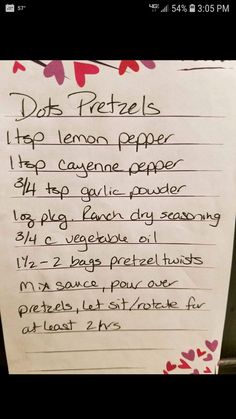 57° 4G 54% 3:05 PM
Dots Pretzels
1 tsp lemon pepper
1 tsp cayenne pepper
3/4 tsp garlic powder
1 oz pkg. Ranch dry seasoning
3/4 c vegetable oil
1 1/2 - 2 bags pretzel twists
Mix sauce, pour over
pretzels, let sit/rotate for
at least 2 hrs